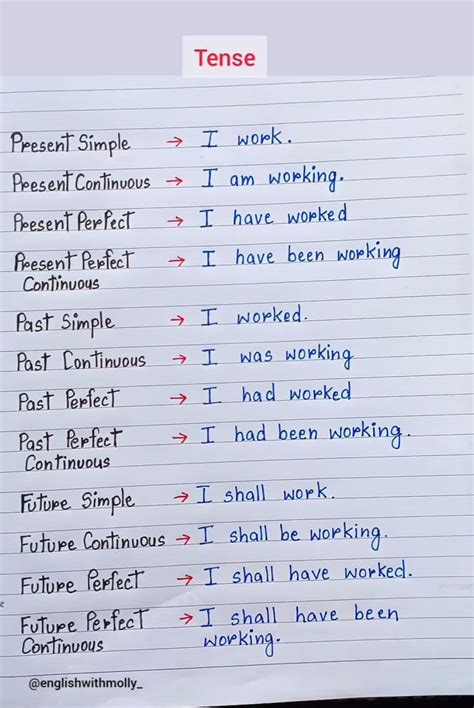 Tense
Present Simple → I work.
Present Continuous → I am working.
Present Perfect → I have worked
Present Perfect → I have been working
Continuous
Past Simple → I worked.
Past Continuous → I was working
Past Perfect → I had worked
Past Perfect → I had been working.
Continuous
Future Simple → I shall work.
Future Continuous → I shall be working.
Future Perfect → I shall have worked.
Future Perfect → I shall have been
Continuous working.
@englishwithmolly_